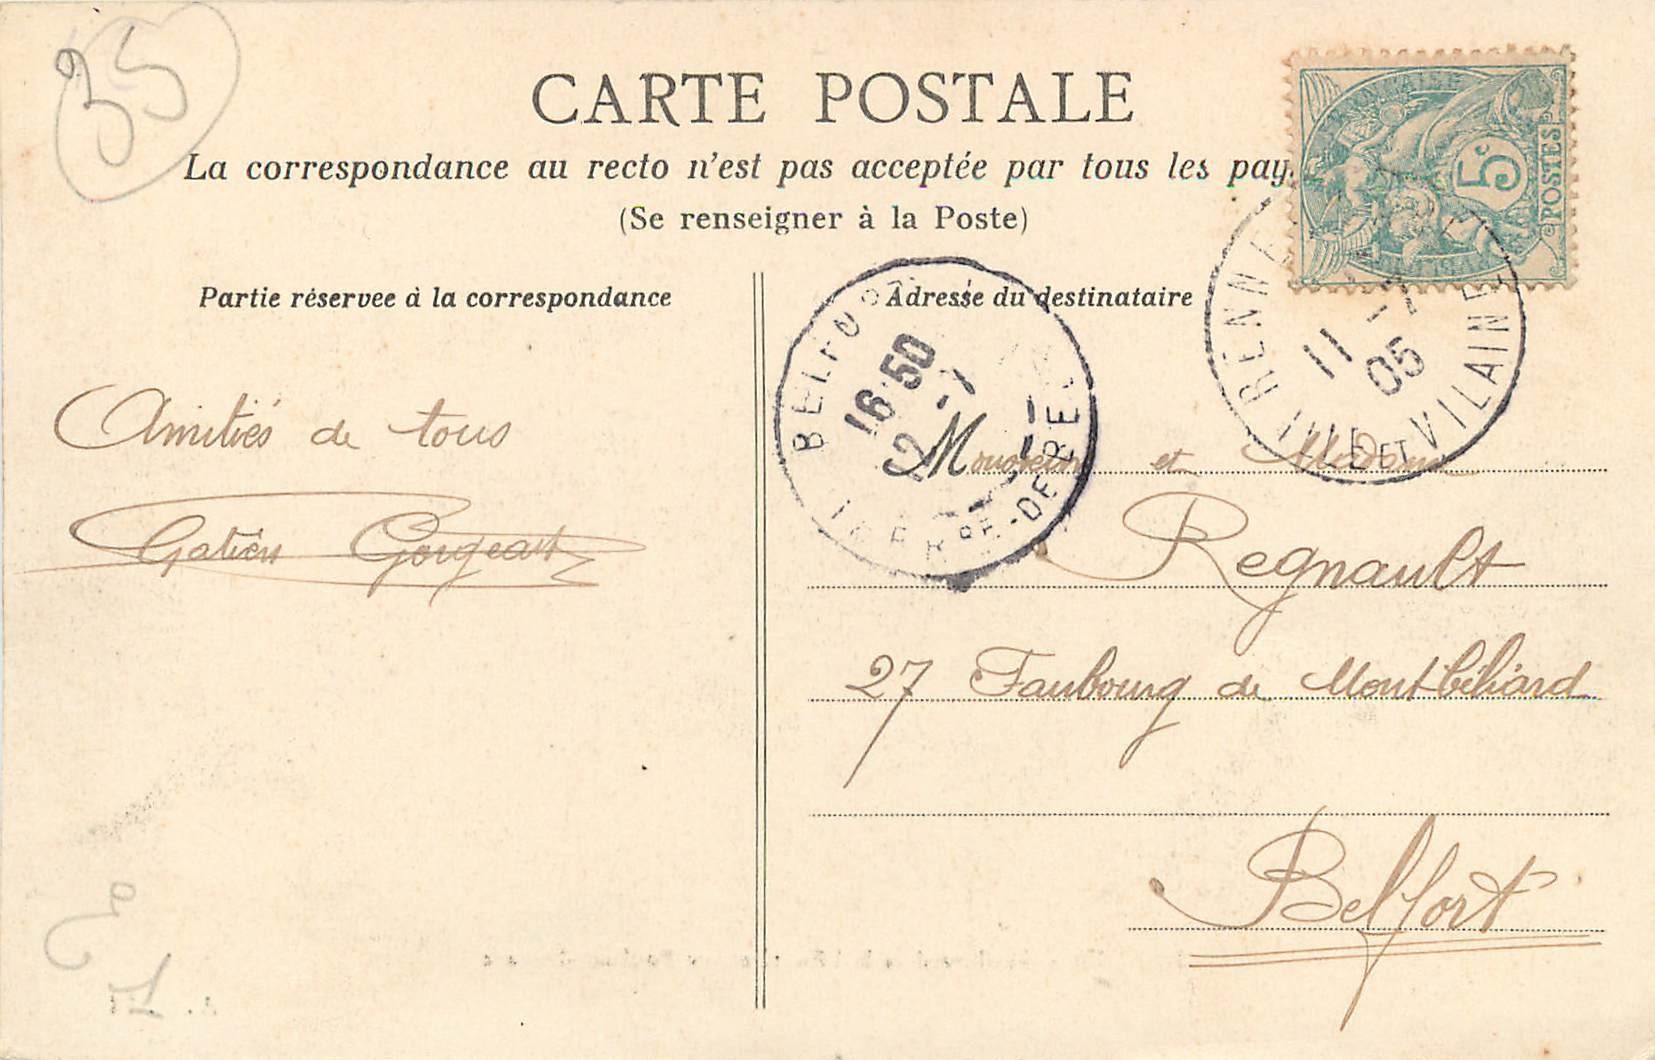 35
CARTE POSTALE
La correspondance au recto n'est pas acceptée par tous les pays
(Se renseigner à la Poste)
5c
POSTES
RENNES
11 -7
05
ILLE ET VILAINE
Partie réservee à la correspondance
Adresse du destinataire
BELFORT
16·50
12 -7
Amitiés de tous
Gatien Gorgeart
Monsieur et Madame
Regnault
27 Faubourg de Montbéliard
Belfort